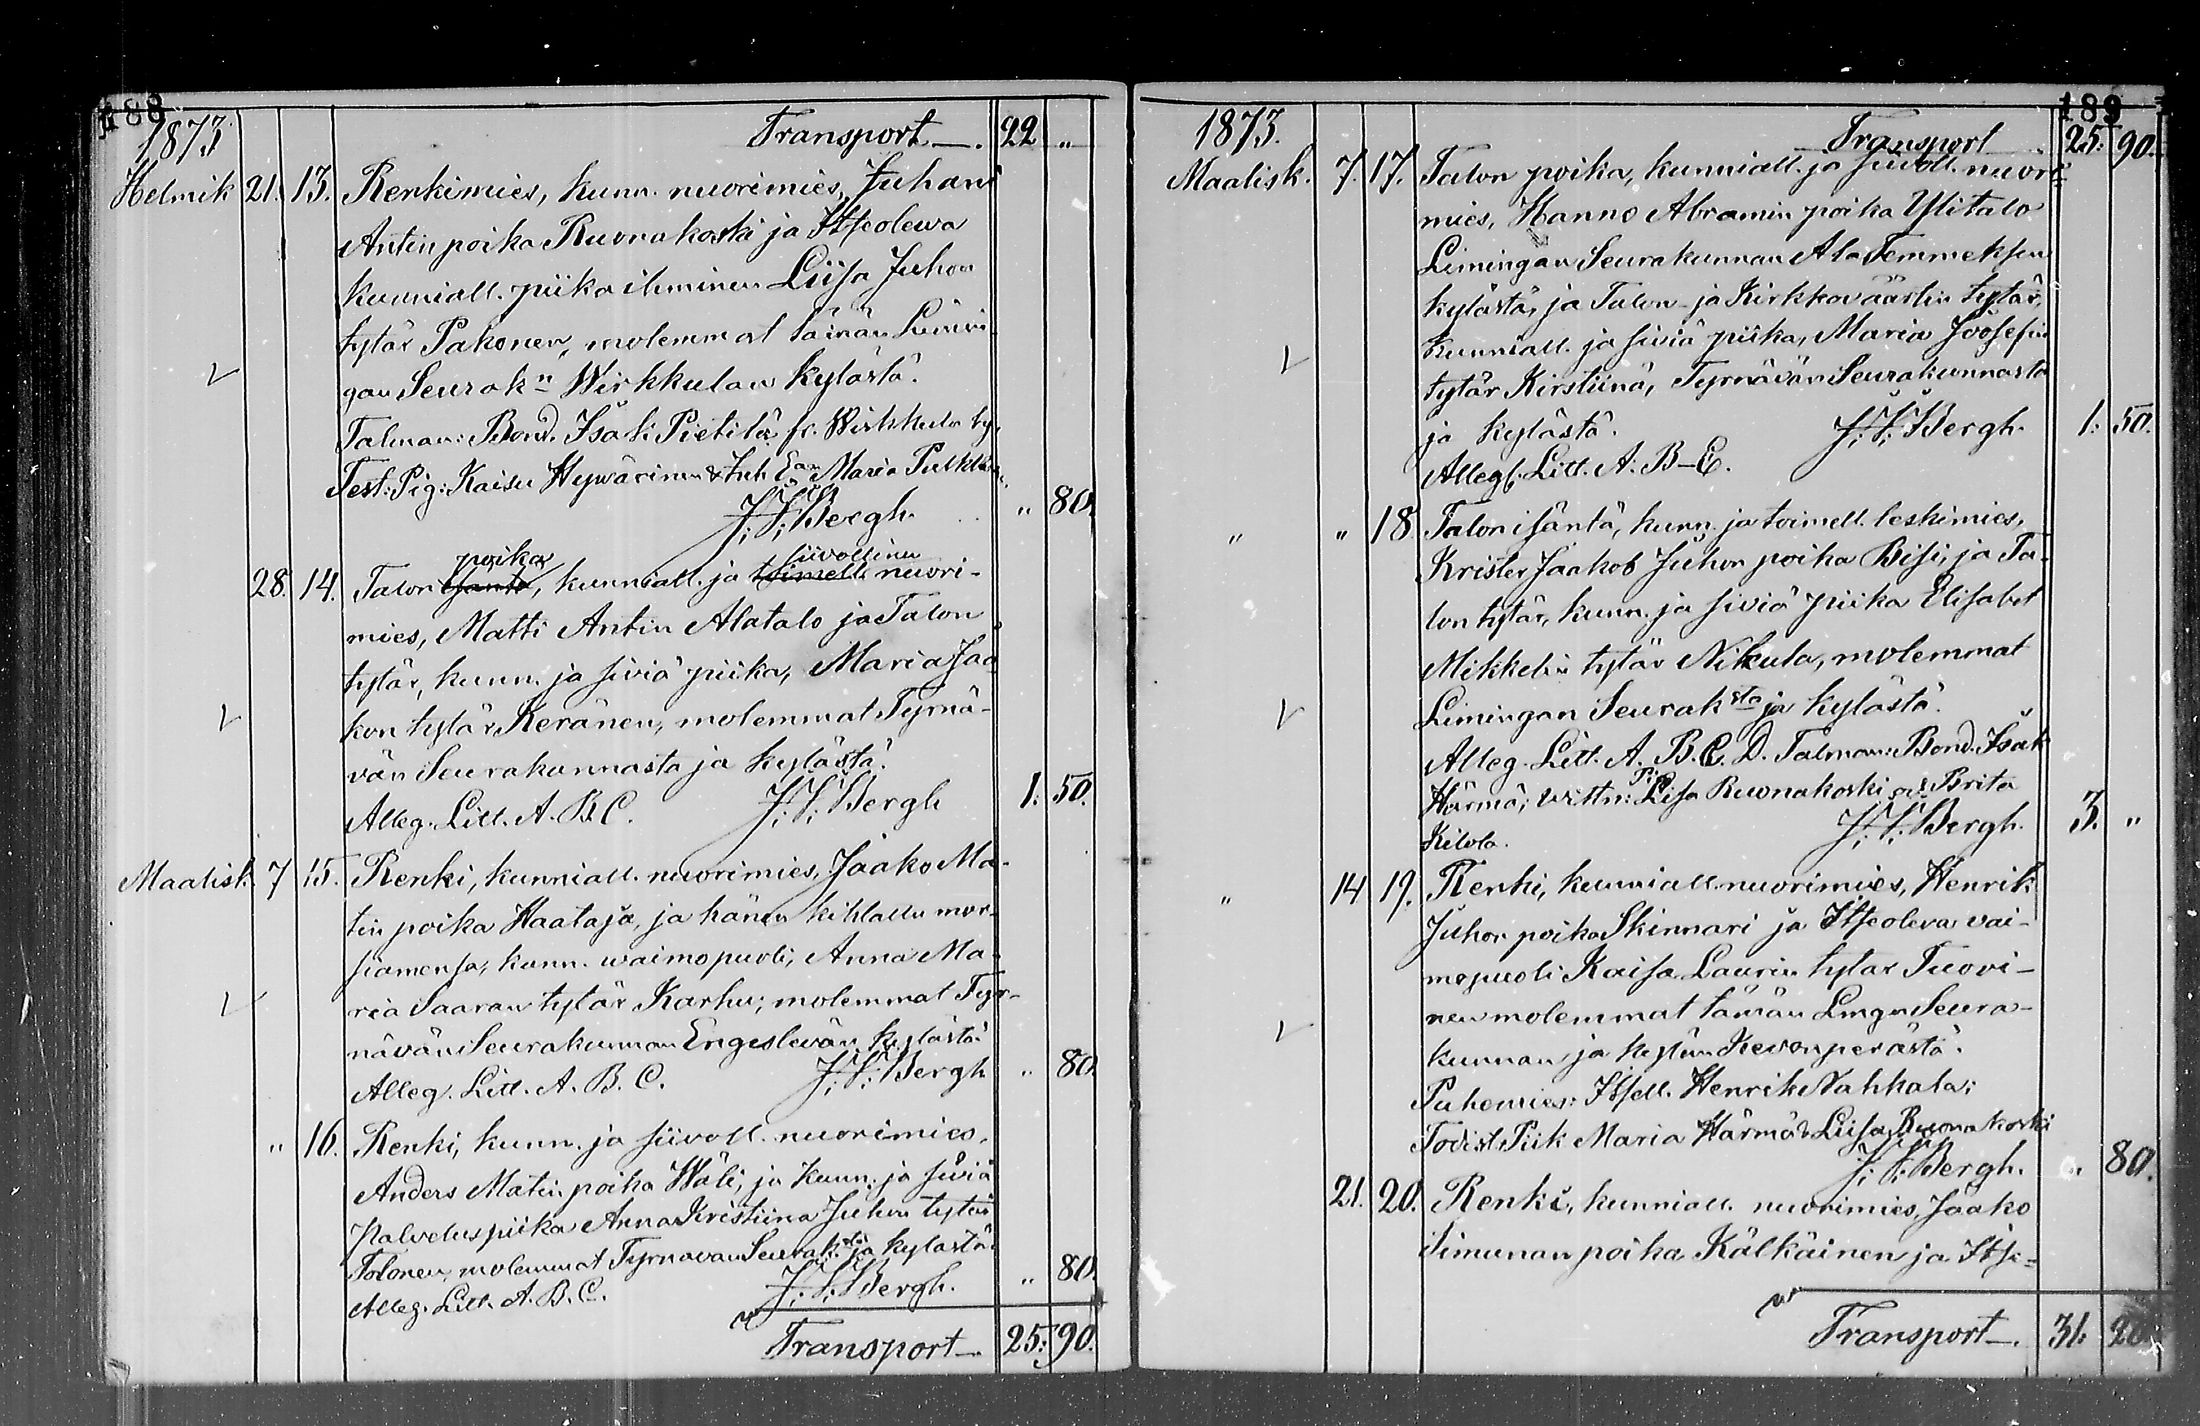 188
1873. Transport 22 "
Helmik 21. 13. Renkimies, kunn. nuorimies, Juhani
Antin poika Ruonakoski ja Itseolewa
kunniall. piika ihminen Liisa Juhon
tytär Pakonen, molemmat tämän Limin-
gan Seurakn Wirkkulan kylästä.
Talman: Bond. Isak Pietilä fr. Wirkkula by,
Test: Pig: Kaisu Heywärinen & Inh. Ean Maria Pulkkinen
J. V. Bergh. " 80.
28. 14. Talon isäntä poika, kunniall. ja toimell. siivollinen nuori-
mies, Matti Antin Alatalo ja Talon
tytär, kunn. ja siviä piika, Maria Jaa-
kon tytär Keränen, molemmat Tyrnä-
vän Seurakunnasta ja kylästä.
Alleg. Litt. A. B. C. J. V. Bergh 1: 50.
Maalisk. 7 15. Renki, kunniall. nuorimies, Jaako Ma-
tin poika Haataja, ja hänen kihlattu mor-
siamensa, kunn. waimopuoli, Anna Ma-
ria Saaran tytär Karhu; molemmat Tyr-
nävän Seurakunnan Engeslevän kylästä.
Alleg. Litt. A. B. C. J. V. Bergh " 80.
" 16. Renki, kunn. ja siivoll. nuorimies,
Anders Matin poika Wäli, ja kunn. ja siviä
palveluspiika Anna Kristiina Juhon tytär
Tolonen, molemmat Tyrnävän Seurak.sta ja kylästä.
Alleg. Litt. A. B. C. J. V. Bergh. " 80.
Transport 25: 90.
189
1873. Transport 25: 90.
Maalisk. 7. 17. Talon poika, kunniall. ja siivoll. nuori-
mies, Hanno Abramin poika Ylitalo
Limingan Seurakunnan Ala Temmeksen
kylästä, ja Talon- ja Kirkkoväärtin tytär,
kunniall. ja siviä piika, Maria Joosefin
tytär Kirstiinä, Tyrnävän Seurakunnasta
ja kylästä. J. V. Bergh. 1: 50.
Alleg. Litt. A. B-E.
" " 18. Talon isäntä, kunn. ja toimell. leskimies,
Krister Jaakob Juhon poika Bisi, ja Ta-
lon tytär, kunn. ja siviä piika Elisabet
Mikkelin tytär Nikula, molemmat
Limingan Seuraksta ja kylästä.
Alleg. Litt. A. B. C. D. Talman: Bond. Isak
Härmä; vittn: Pig. Lisa Ruonakoski och Brita
Kilola. J. V. Bergh. 3. "
" 14 19. Renki, kunniall. nuorimies, Henrik
Juhon poika Skinnari ja Itseoleva vai-
mopuoli Kaisa Laurin tytar Tuovi-
nen molemmat tämän Lmgn Seura-
kunnan ja kylän Ketunperästä.
Puhemies: Itsell. Henrik Nahkala;
Todist. Piik Maria Härmä & Liisa Ruonakoski
J. V. Bergh. " 80.
21. 20. Renki, kunniall. nuorimies, Jaako
Simunan poika Kälkäinen ja Itse-
Transport 31: 20.